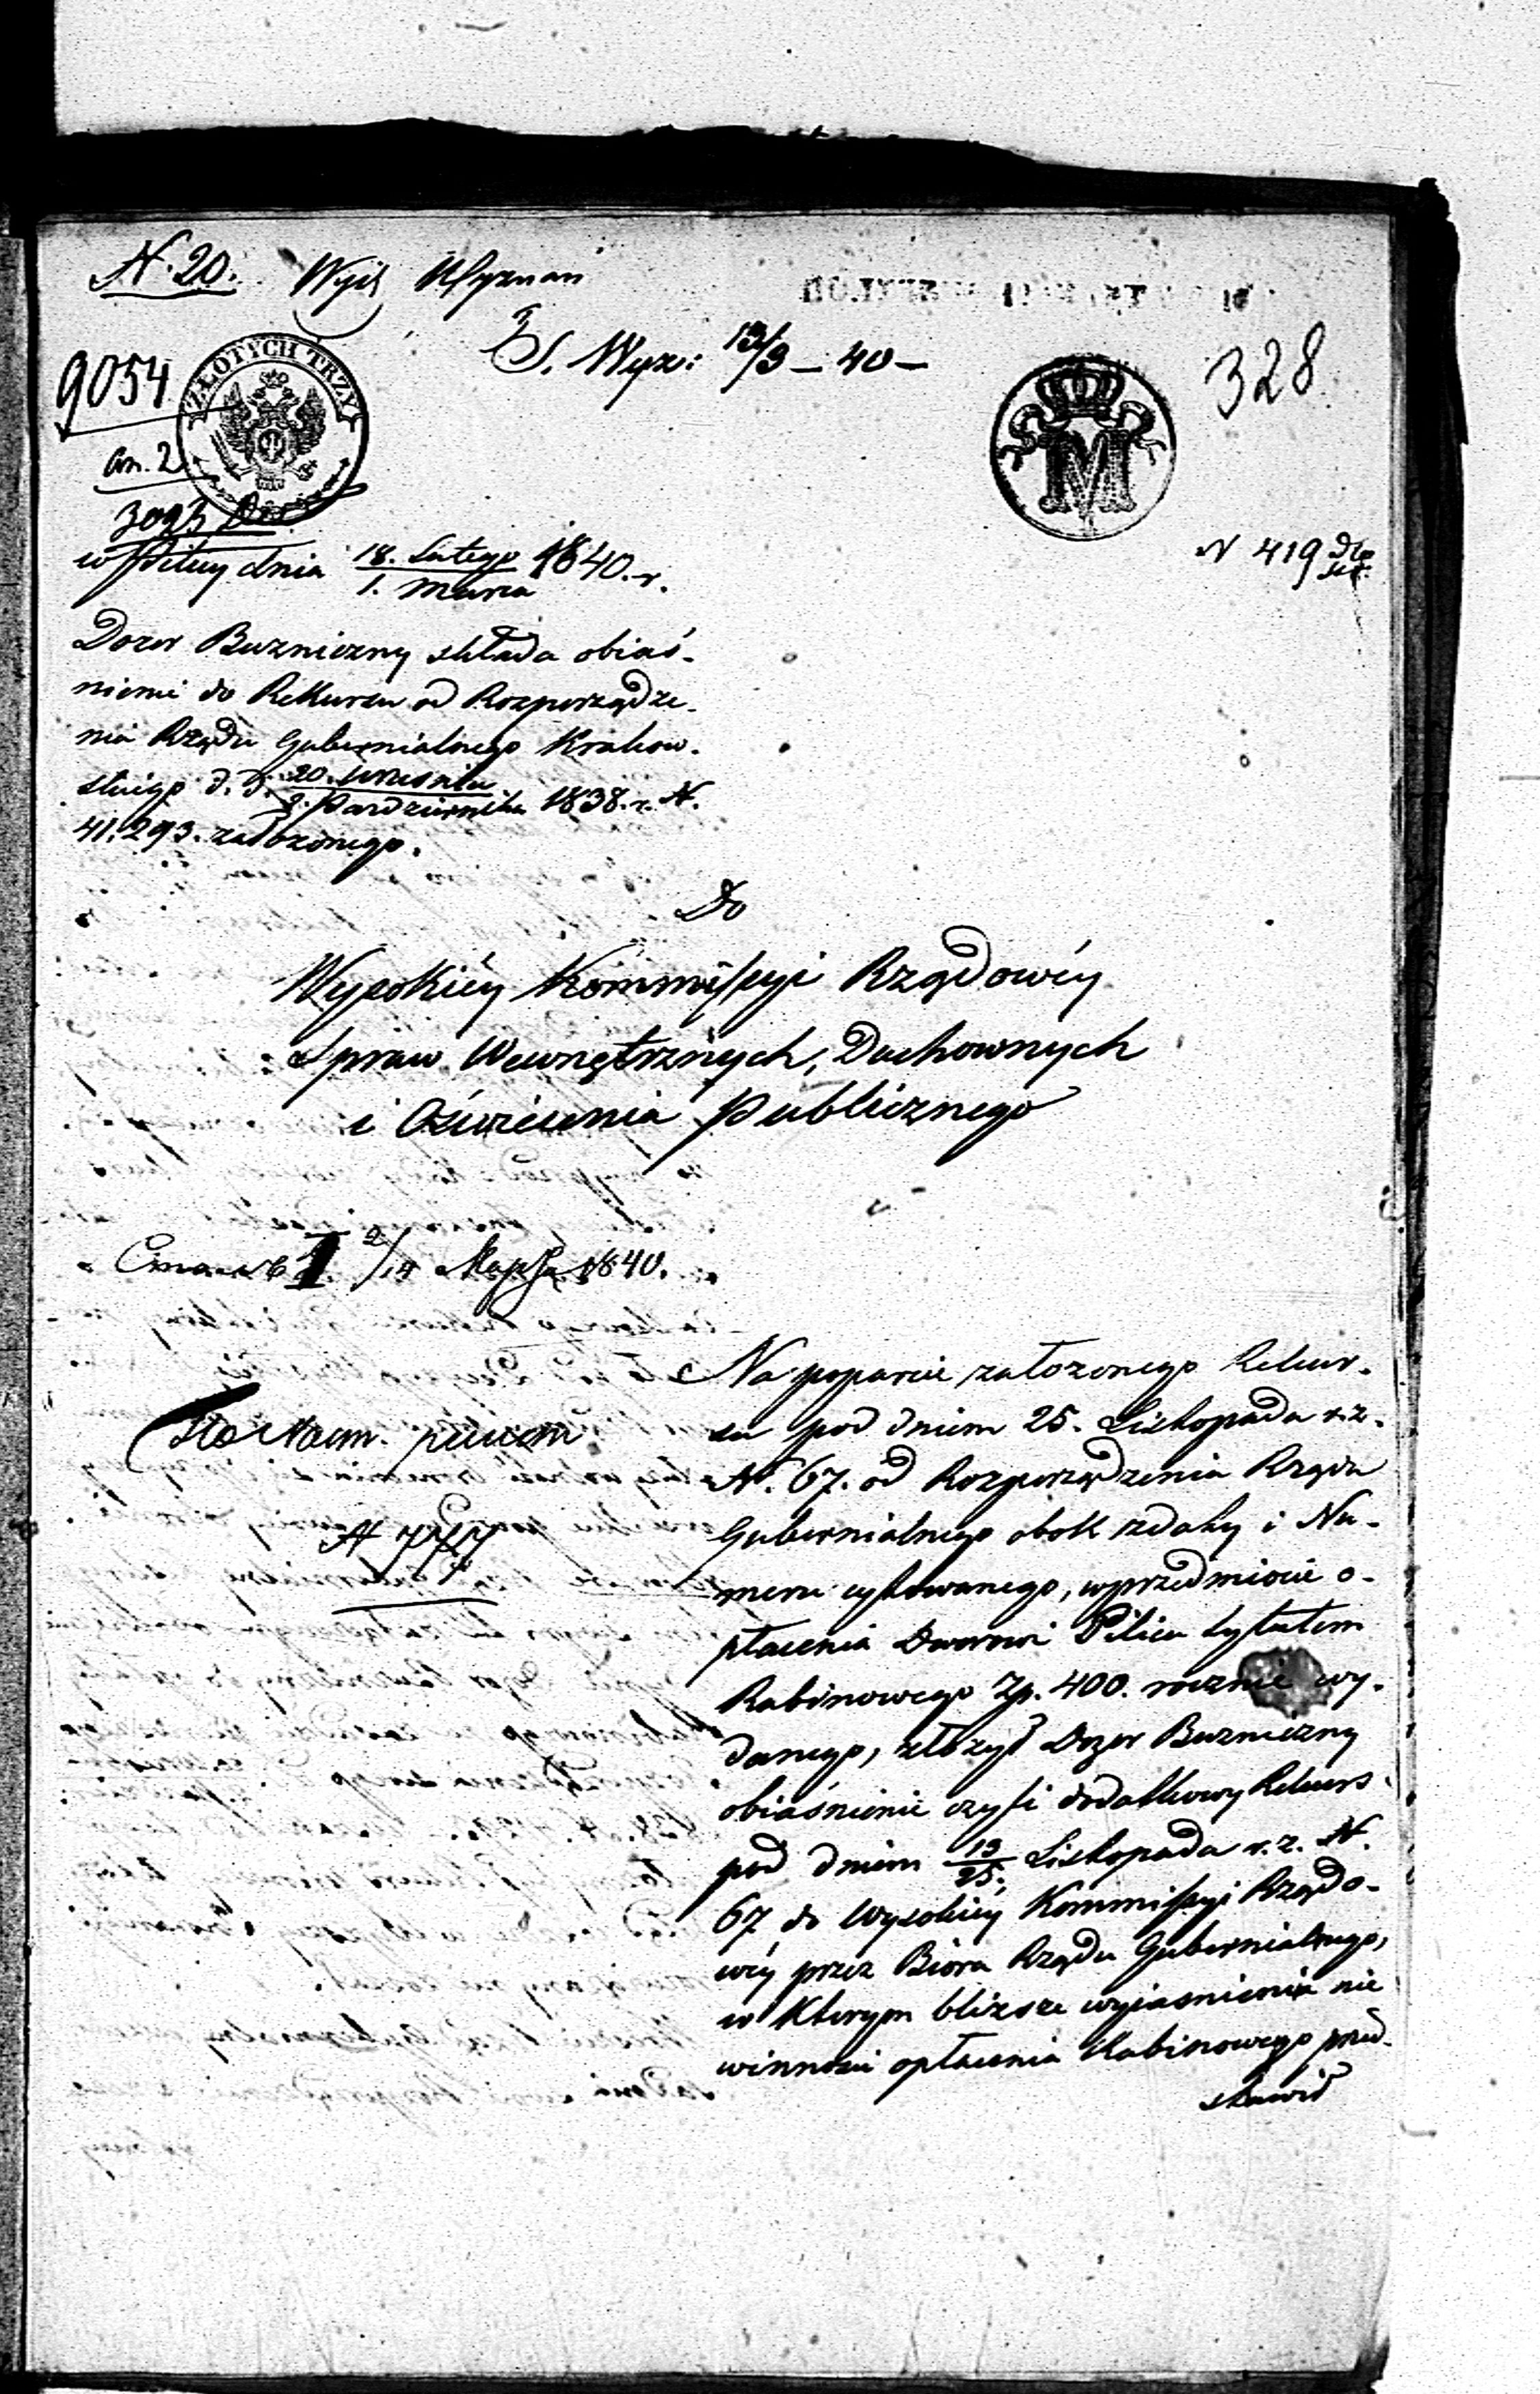 N. 20. Wydz Wyznań
S. Wyz: 13/3 – 40 –
328
9054
ZŁOTYCH TRZY
M
an. 2
3093
N 419
w Pilicy dnia 18. Lutego / 1. Marca 1840. r.
Dozór Buzniczny składa obiaś-
nienie do Rekursu od Rozporządze-
nia Rządu Gubernialnego Krakow-
skiego d. d. 20. Września / 2. Pazdziernika 1838. r. N.
41,293. założonego.
Do
Wysokiéy Kommissyi Rządowéy
Spraw Wewnętrznych, Duchownych
i Oświecenia Publicznego
2/14 Марта 1840.
Na poparcie założonego Rekur-
su pod dniem 25. Listopada r. z.
N. 67. od Rozporządzenia Rządu
Gubernialnego obok zdaty i Nu-
meru cytowanego, wprzedmiocie o-
płacenia Dworowi Pilica tytułem
Rabinowego Zp. 400. rocznie wy-
danego, złożył Dozór Buzniczny
obiaśnienie czyli dodatkowy Rekurs
pod dniem 13/25. Listopada r. z. N.
67 do Wysokiéy Kommissyi Rządo-
wéy przez Bióra Rządu Gubernialnego,
w którym bliższe wyiasnienia nie
winności opłacenia Rabinowego przed-
stawił